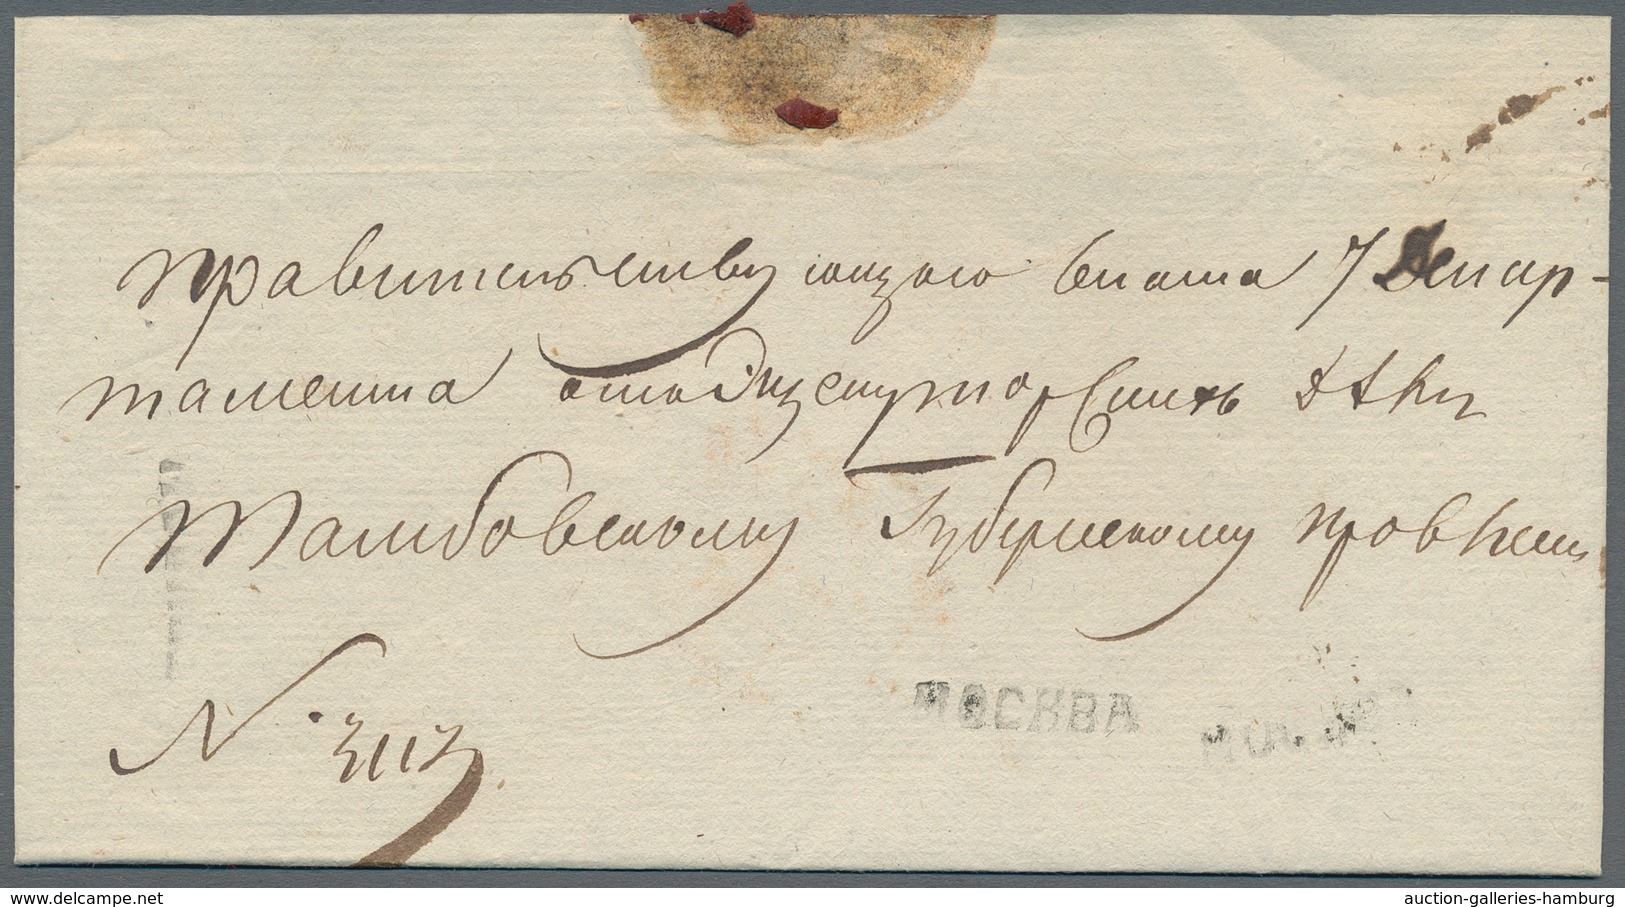 Правительствующаго Сената 7 Депар-
тамента отъ Экзекуторскихъ дѣлъ
Тамбовскому Губернскому правлени
N. 3113
МОСКВА
МОСКВА
delcampe.net
auction-galleries-hamburg